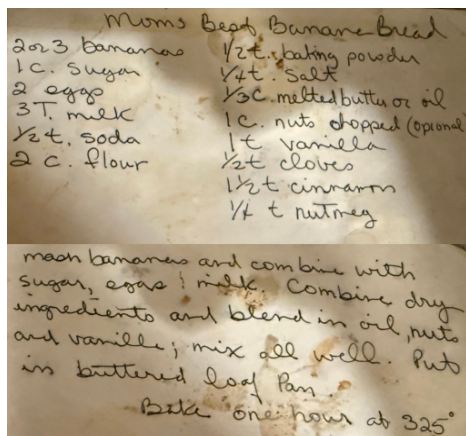 Moms Best Banana Bread
2 or 3 bananas
1 c. sugar
2 eggs
3 T. milk
1/2 t. soda
2 c. flour
1/2 t. baking powder
1/4 t. salt
1/3 c. melted butter or oil
1 c. nuts chopped (optional
1 t vanilla
1/2 t cloves
1 1/2 t cinnamon
1/4 t nutmeg
mash bananas and combine with
sugar, eggs & milk. Combine dry
ingredients and blend in oil, nuts
and vanilla; mix all well. Put
in buttered loaf Pan.
Bake one hour at 325°